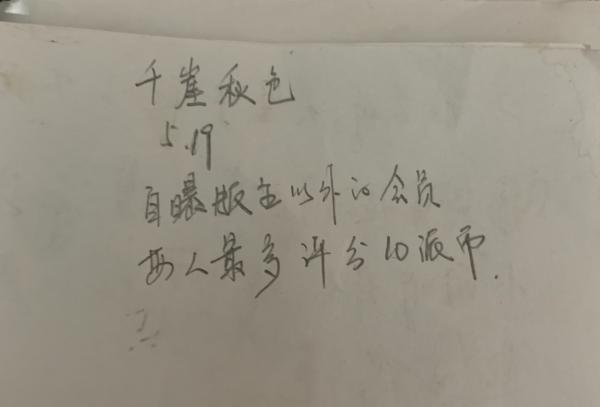 千崖秋色
5.19
自曝版主以外的会员
每人最多评分10派币.